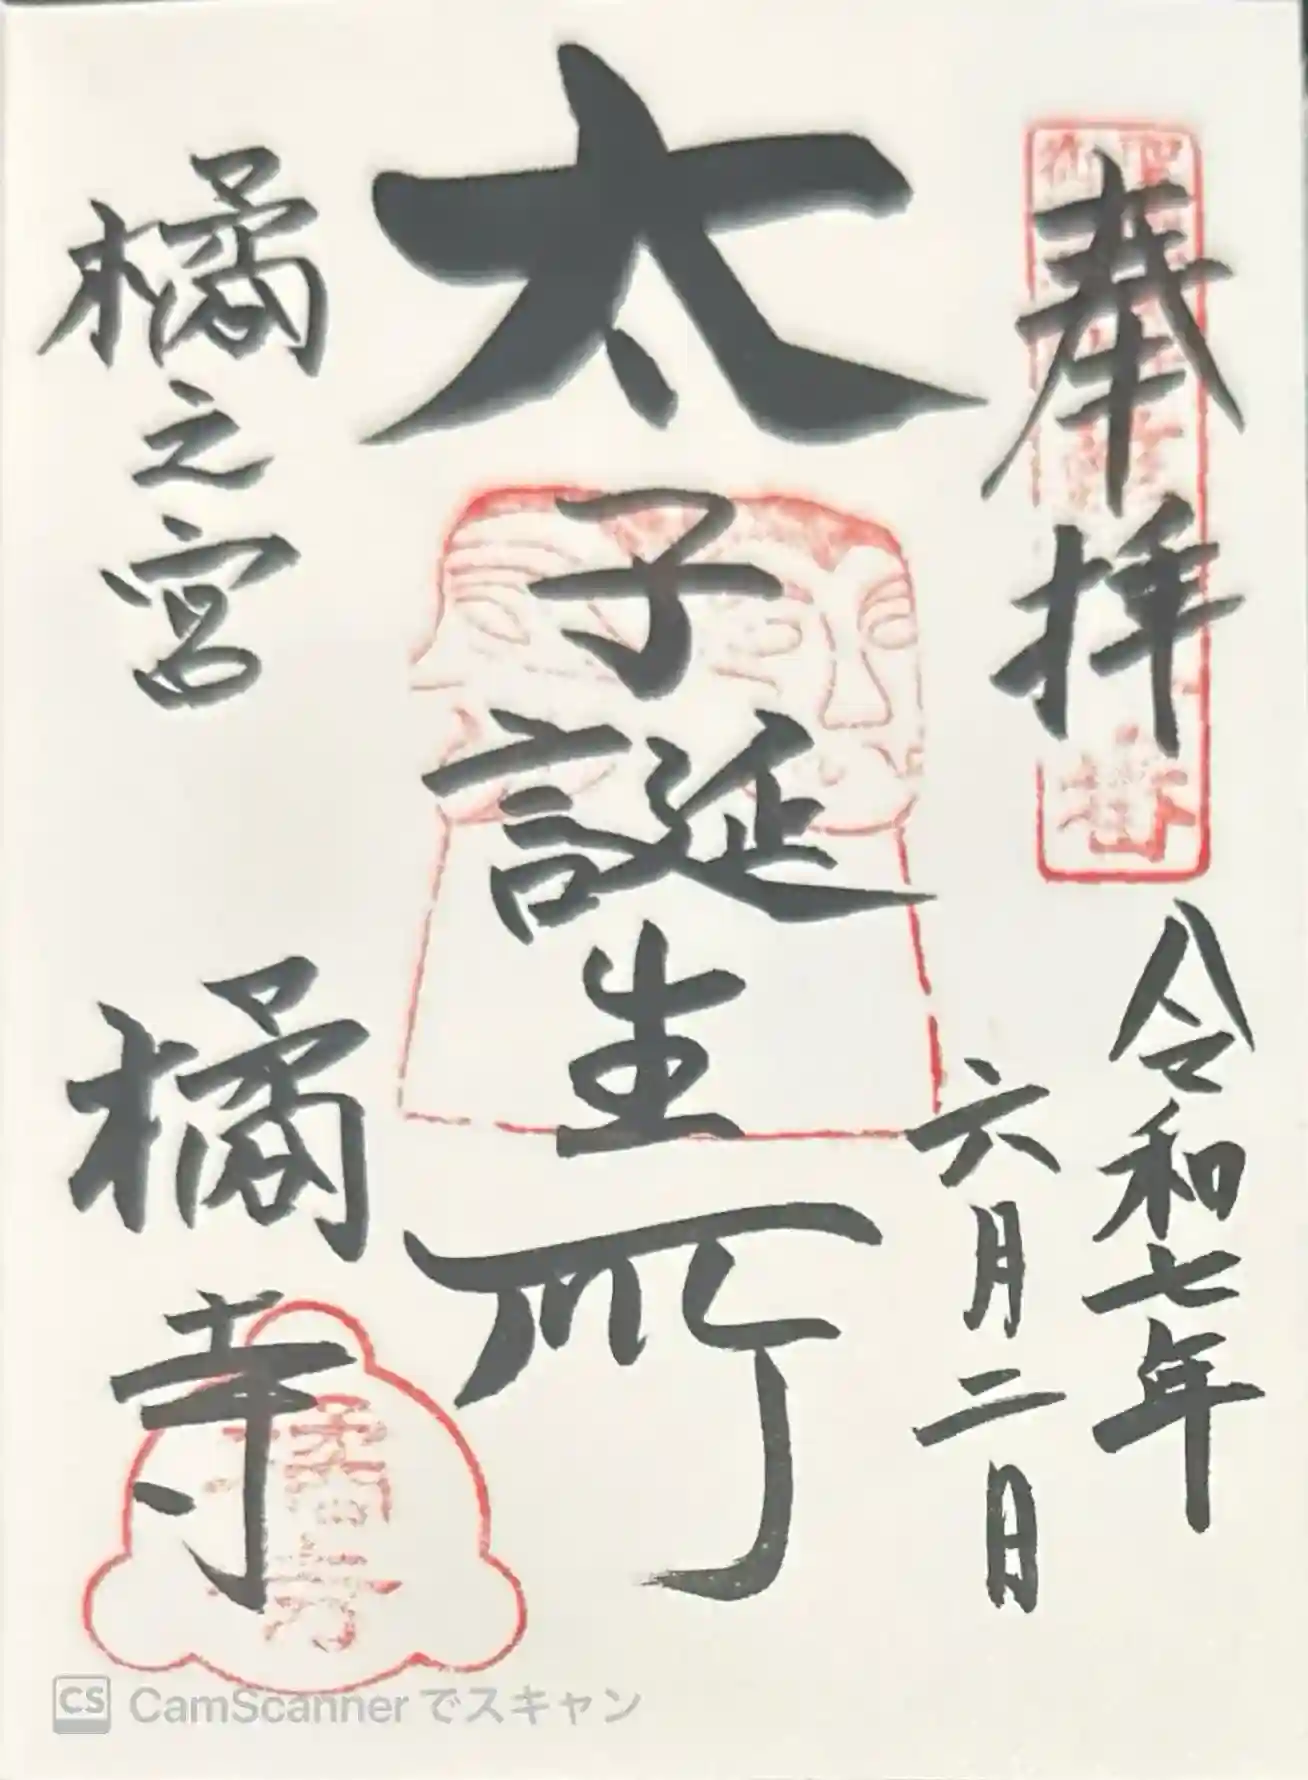 奉拝
令和七年
六月二日
太子誕生所
橘之宮
橘寺
橘寺
CS CamScanner でスキャン